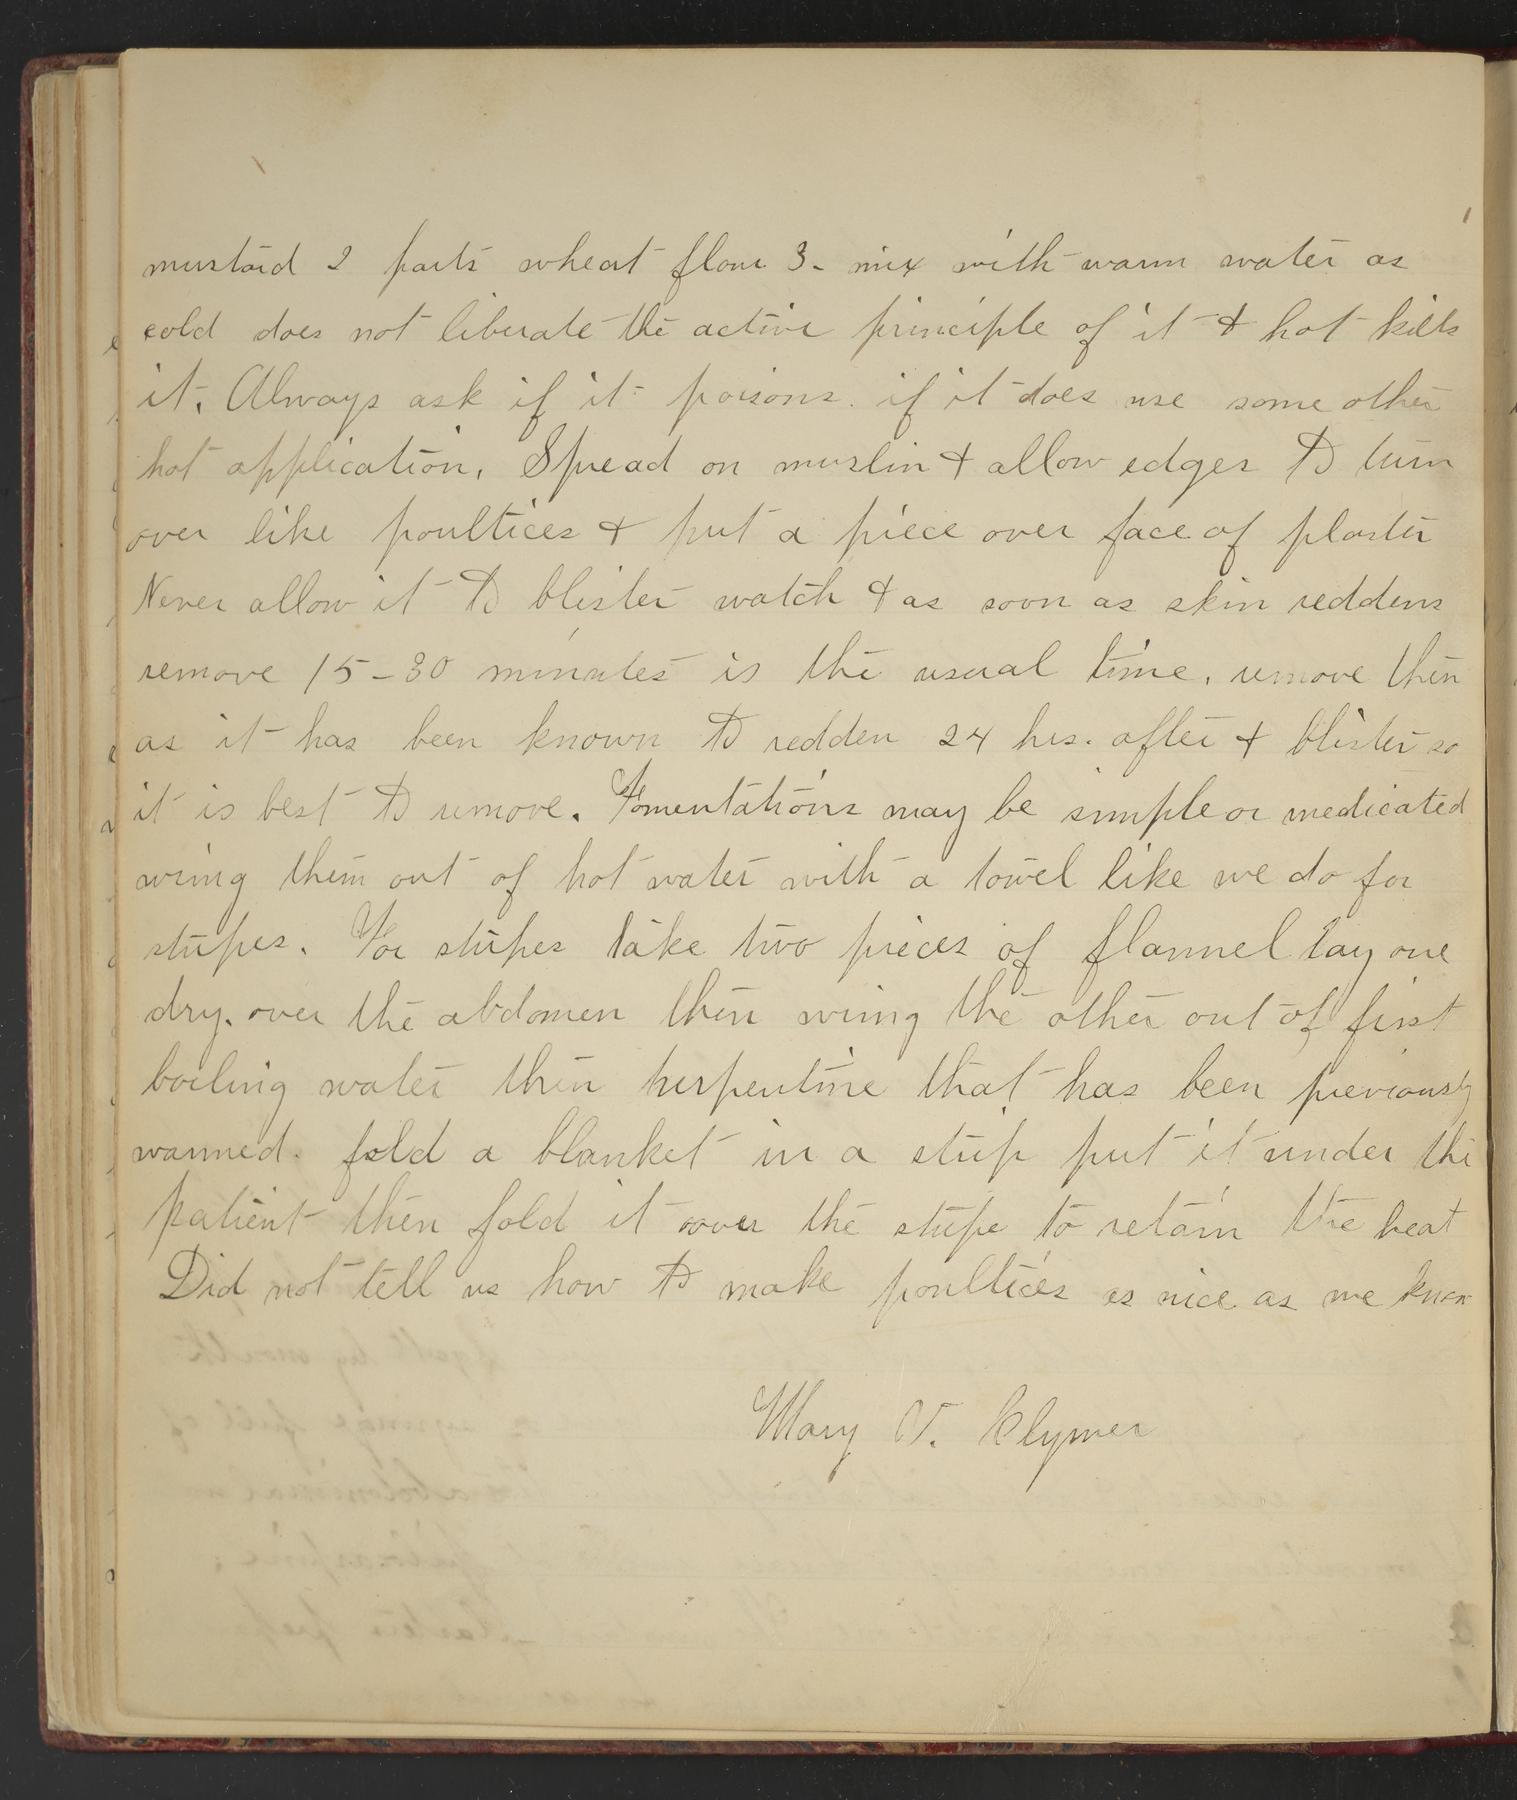 mustard 2 parts wheat flour 3- mix with warm water as
cold does not liberate the active principle of it & hot kills
it. Always ask if it poisons. if it does use some other
hot application. Spread on muslin & allow edges to turn
over like poultices & put a piece over face of plaster
Never allow it to blister watch & as soon as skin reddens
remove 15-30 minutes is the usual time. remove then
as it has been known to redden 24 hrs. after & blister so
it is best to remove. Fomentations may be simple or medicated
wring them out of hot water with a towel like we do for
stupes. For stupes take two pieces of flannel lay one
dry. over the abdomen then wring the other out of first
boiling water then turpentine that has been previously
warmed. fold a blanket in a strip put it under the
patient then fold it over the stupe to retain the heat
Did not tell us how to make poultices as nice as we know
Mary V. Clymer